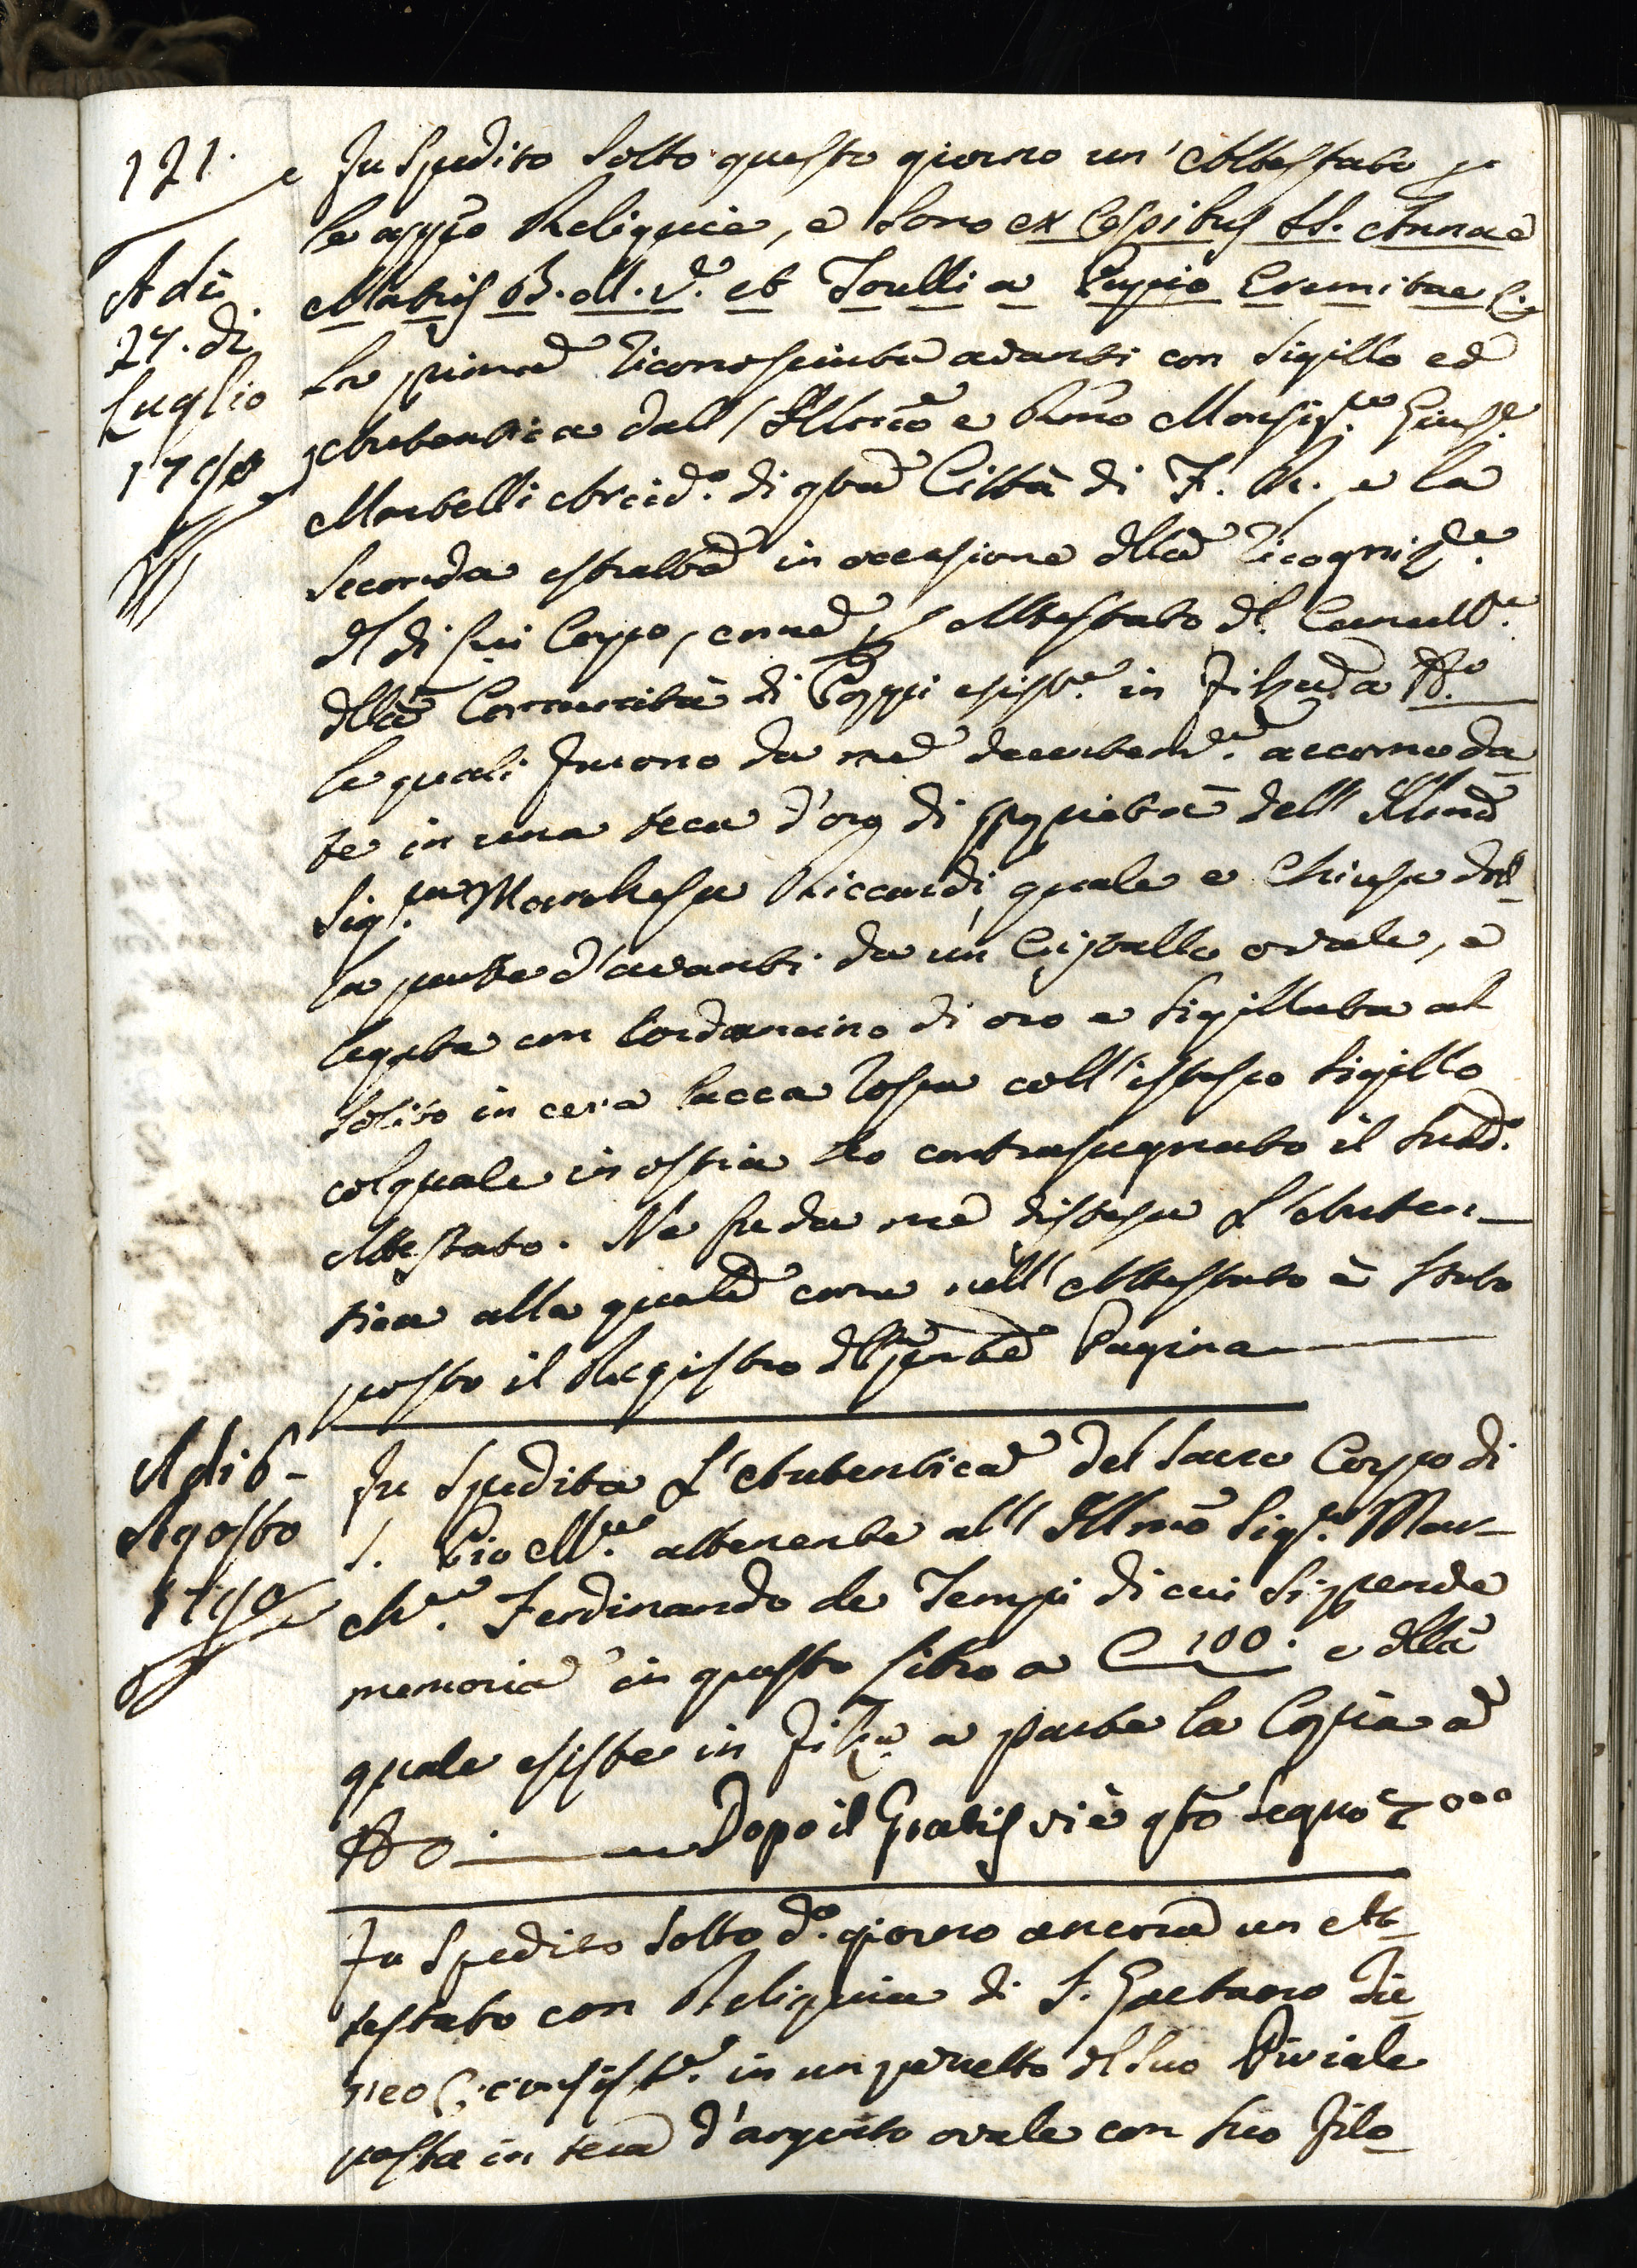 121.
Adi
27. di
Luglio
1790
Fu Spedito sotto questo giorno un' Attestato p
le appo Reliquie, e sono ex Cespibus SS. Annae
Matris B. M. V.e et Torelli a Puppio Eremitae
La prima riconosciuta avanti con Sigillo ed
Autentica dall' Illmo e Rmo Monsig.re Gius.e
Martelli Arcid.o di qta Città di F. R. e la
Seconda estratta in occasione dlla ricogniz.e
dl di lui Corpo, come p Attestato dl. Cancell.e
dlla Comunità di Poppi esist.e in Filza da N.o
le quali furono da me decentem.e accomoda
te in una teca d'oro di propietà dell' Illma
Sig.ra Marchesa Riccardi, quale e chiusa dal
la parte d'avanti da un Cristallo ovale, e
legata con Cordoncino di oro e Sigillata al
solito in cera lacca rossa coll' istesso Sigillo
col quale in ostia ho contrasegnato il Sudd.o
Attestato. Ne fu da me distesa l'Auten-
tica alla quale come nell' Attestato è stato
posto il Registro dlla pnte Pagina
Adi 6
Agosto
1790
Fu Spedita l'Autentica del Sacro Corpo di
S. Pio M.re attenente all' Illmo Sig.r Mar-
ch.e Ferdinando de Tempi di cui si prende
memoria in questo libro a C 100. e dlla
quale esiste in Filza a parte la Copia a
No. Dopo il Gratis vi è qto Segno 7ooo
Fu Spedito sotto d.o giorno ancora un At-
testato con Reliquia di S. Gaetano Tie
neo C. consist.e in un pezzetto dl suo Piviale
posta in teca d'argento ovale con suo filo